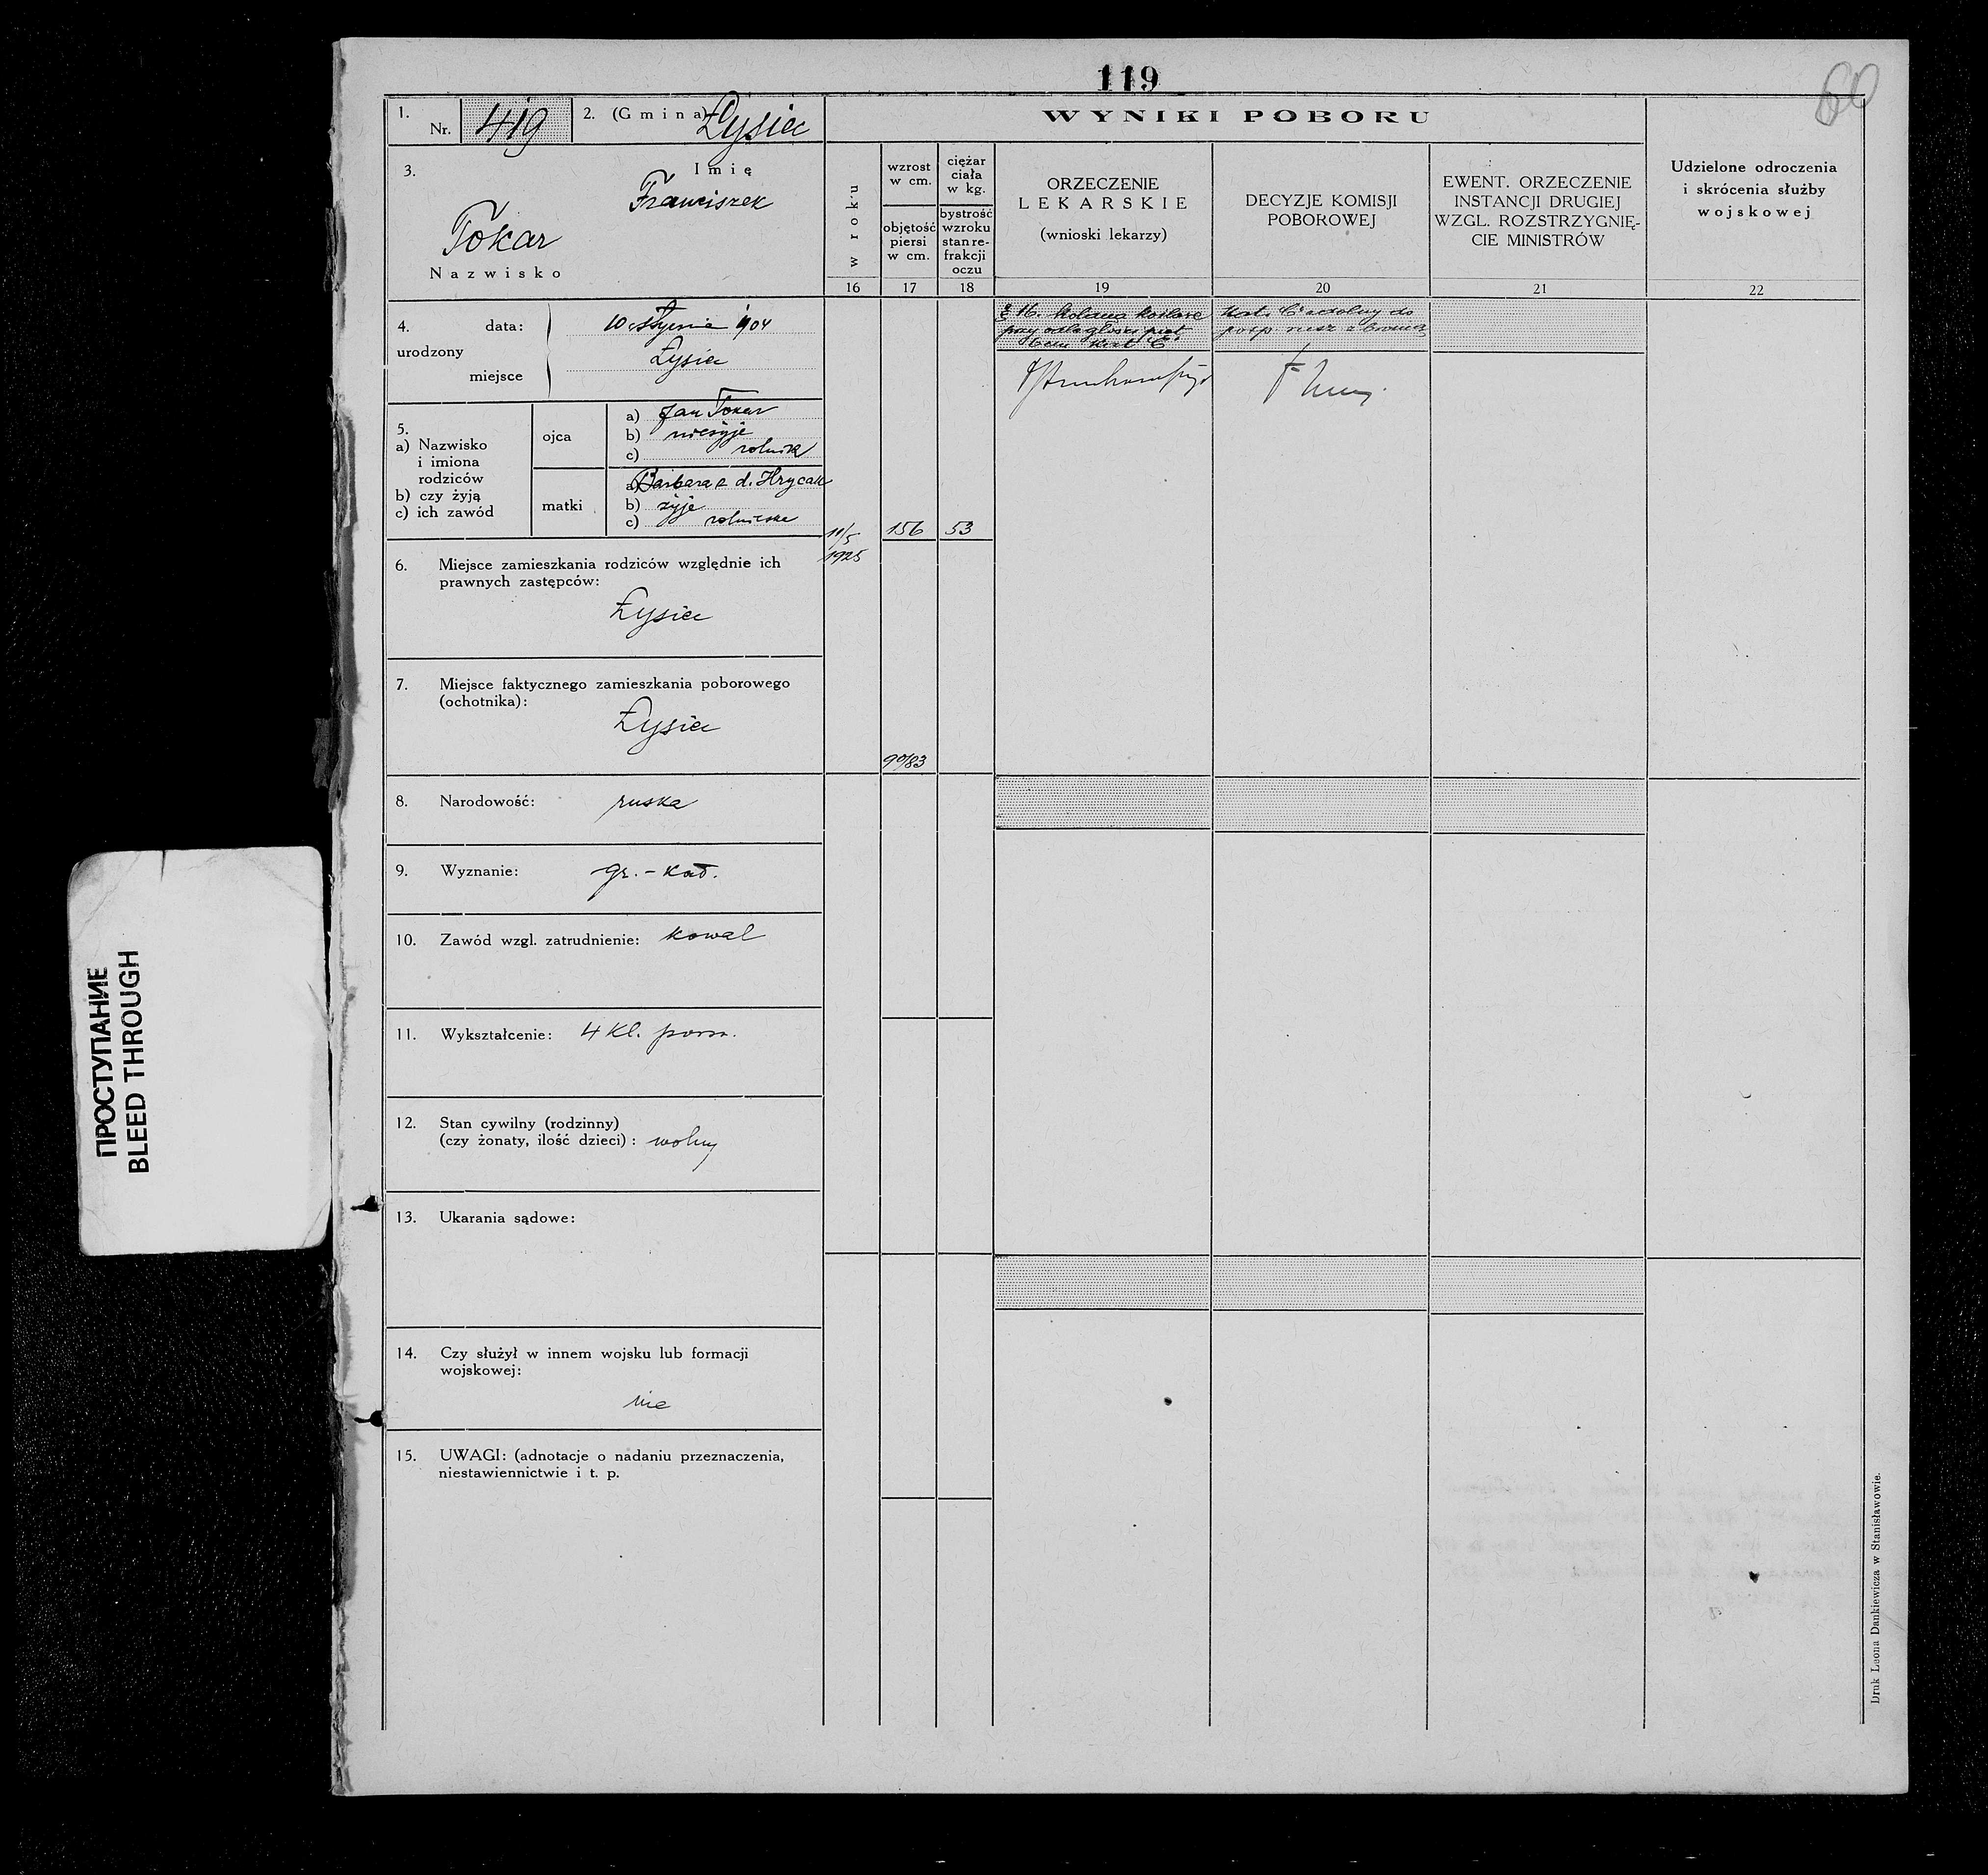 119
60
1.
Nr. 419
2. (Gmina) Łysiec
WYNIKI POBORU
3.
Imię
Franciszek
Tokar
Nazwisko
w roku
wzrost
w cm.
objętość
piersi
w cm.
ciężar
ciała
w kg.
bystrość
wzroku
stan re-
frakcji
oczu
ORZECZENIE
LEKARSKIE
(wnioski lekarzy)
DECYZJE KOMISJI
POBOROWEJ
EWENT. ORZECZENIE
INSTANCJI DRUGIEJ
WZGL. ROZSTRZYGNIĘ-
CIE MINISTRÓW
Udzielone odroczenia
i skrócenia służby
wojskowej
16 17 18 19 20 21 22
4. data: 10 stycznia 1904
urodzony
miejsce Łysiec
5.
a) Nazwisko
i imiona
rodziców
b) czy żyją
c) ich zawód
ojca
a) Jan Tokar
b) nieżyje
c) rolnik
matki
a) Barbara z d. Hrycak
b) żyje
c) rolniczka
11/5
1925
156
53
90/83
§ 16. Kolana koślawe
przy odległości pięt
6 cm kat. C
Kat. C zdolny do
posp. rusz. z bronią
6. Miejsce zamieszkania rodziców względnie ich
prawnych zastępców:
Łysiec
7. Miejsce faktycznego zamieszkania poborowego
(ochotnika):
Łysiec
8. Narodowość: ruska
9. Wyznanie: gr.-kat.
10. Zawód wzgl. zatrudnienie: kowal
11. Wykształcenie: 4 kl. pow.
12. Stan cywilny (rodzinny)
(czy żonaty, ilość dzieci): wolny
13. Ukarania sądowe:
14. Czy służył w innem wojsku lub formacji
wojskowej:
nie
15. UWAGI: (adnotacje o nadaniu przeznaczenia,
niestawiennictwie i t. p.
Druk Leona Dankiewicza w Stanisławowie.
ПРОСТУПАНИЕ
BLEED THROUGH